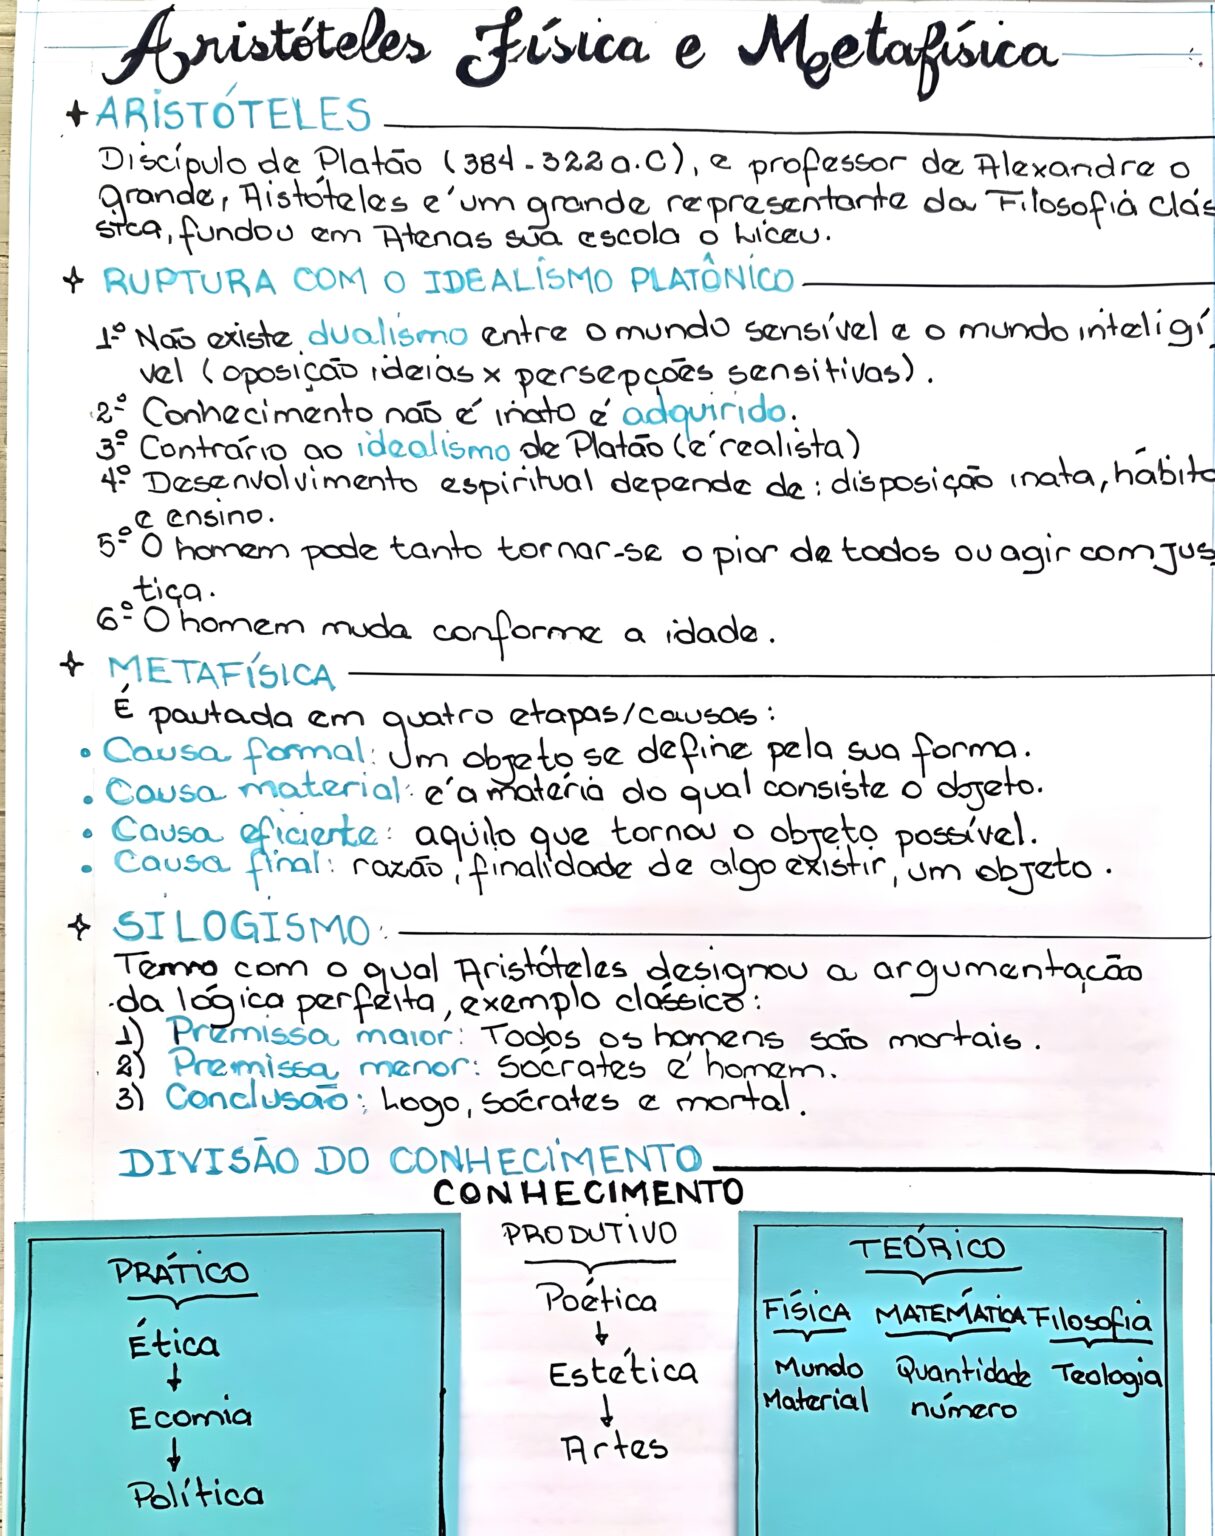 Aristóteles Física e Metafísica
ARISTÓTELES
Discípulo de Platão (384-322 a.C), e professor de Alexandre o
grande, Aistóteles é um grande representante da Filosofia clás
sica, fundou em Atenas sua escola o Liceu.
RUPTURA COM O IDEALISMO PLATÔNICO
1º Não existe dualismo entre o mundo sensível e o mundo inteligí
vel (oposição ideias x persepções sensitivas).
2º Conhecimento não é inato é adquirido.
3º Contrário ao idealismo de Platão (é realista)
4º Desenvolvimento espiritual depende de: disposição inata, hábito
e ensino.
5º O homem pode tanto tornar-se o pior de todos ou agir com jus
tiça.
6º O homem muda conforme a idade.
METAFÍSICA
É pautada em quatro etapas/causas:
• Causa formal: Um objeto se define pela sua forma.
• Causa material: é a matéria do qual consiste o objeto.
• Causa eficiente: aquilo que tornou o objeto possível.
• Causa final: razão, finalidade de algo existir, um objeto.
SILOGISMO:
Termo com o qual Aristóteles designou a argumentação
da lógica perfeita, exemplo clássico:
1) Premissa maior: Todos os homens são mortais.
2) Premissa menor: Sócrates é homem.
3) Conclusão: Logo, sócrates e mortal.
DIVISÃO DO CONHECIMENTO
CONHECIMENTO
PRÁTICO
Ética
↓
Ecomia
↓
Política
PRODUTIVO
Poética
↓
Estética
↓
Artes
TEÓRICO
FÍSICA MATEMÁTICA Filosofia
Mundo Quantidade Teologia
Material número